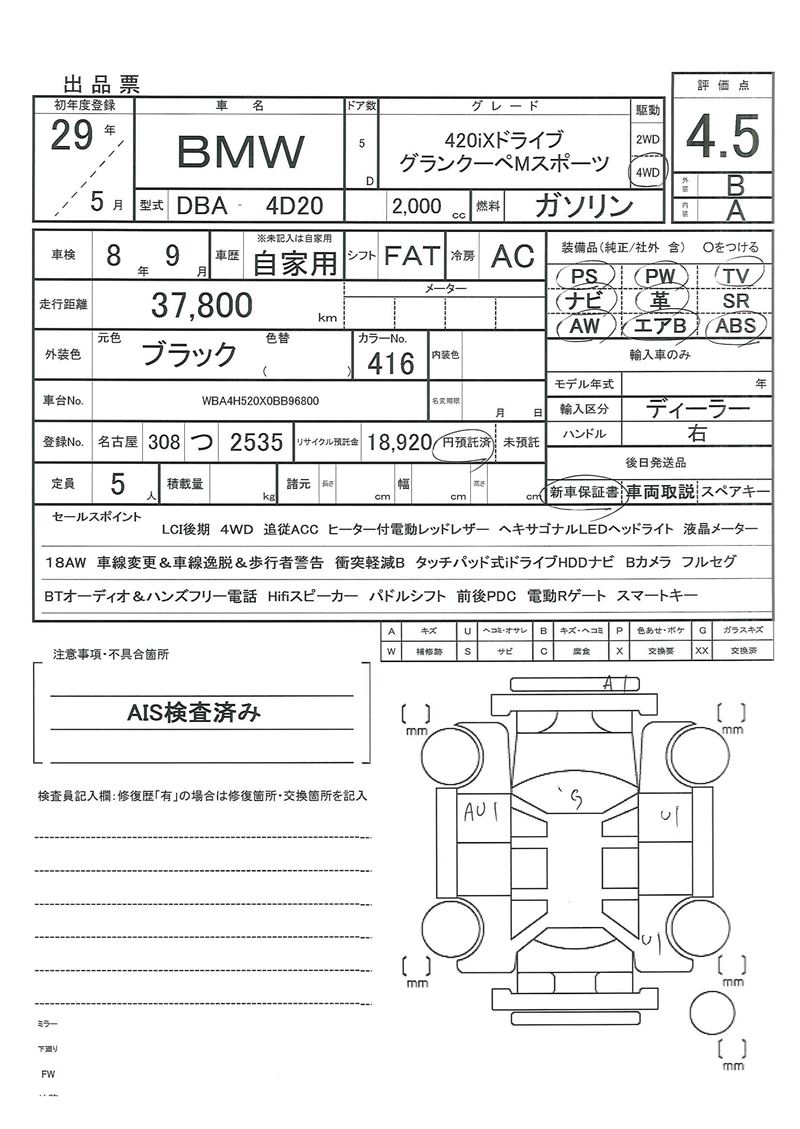 出品票
初年度登録 車名 ドア数 グレード 駆動 評価点
29年 5月
BMW
5 D
420iXドライブ
グランクーペMスポーツ
2WD
4WD
4.5
外装 B
内装 A
型式 DBA - 4D20 2,000 cc 燃料 ガソリン
車検 8年 9月 車歴 ※未記入は自家用 自家用 シフト FAT 冷房 AC
装備品(純正/社外 含) Oをつける
PS PW TV
ナビ 革 SR
AW エアB ABS
走行距離 37,800 km メーター
外装色 元色 ブラック 色替 ( ) カラーNo. 416 内装色
輸入車のみ
モデル年式 年
車台No. WBA4H520X0BB96800 名変期限 月 日
輸入区分 ディーラー
登録No. 名古屋 308 つ 2535 リサイクル預託金 18,920 円預託済 未預託
ハンドル 右
後日発送品
定員 5人 積載量 kg 諸元 長さ cm 幅 cm 高さ cm
新車保証書 車両取説 スペアキー
セールスポイント
LCI後期 4WD 追従ACC ヒーター付電動レッドレザー ヘキサゴナルLEDヘッドライト 液晶メーター
18AW 車線変更&車線逸脱&歩行者警告 衝突軽減B タッチパッド式iドライブHDDナビ Bカメラ フルセグ
BTオーディオ&ハンズフリー電話 Hifiスピーカー パドルシフト 前後PDC 電動Rゲート スマートキー
A キズ U ヘコミ・オサレ B キズ・ヘコミ P 色あせ・ボケ G ガラスキズ
W 補修跡 S サビ C 腐食 X 交換要 XX 交換済
注意事項・不具合箇所
AIS検査済み
検査員記入欄:修復歴「有」の場合は修復箇所・交換箇所を記入
A1
[ ] mm
[ ] mm
G
AU1
U1
U1
[ ] mm
[ ] mm
[ ] mm
ミラー
下廻り
FW